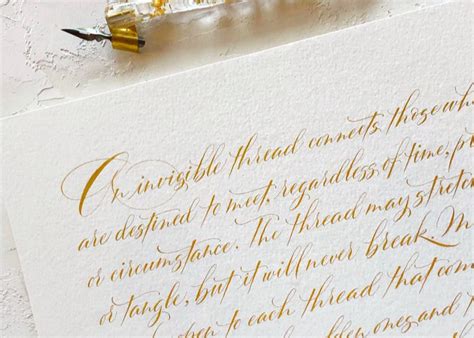 An invisible thread connects those wh
are destined to meet, regardless of time, p
or circumstance. The thread may stretch
or tangle, but it will never break. M
open to each thread that com
golden ones and